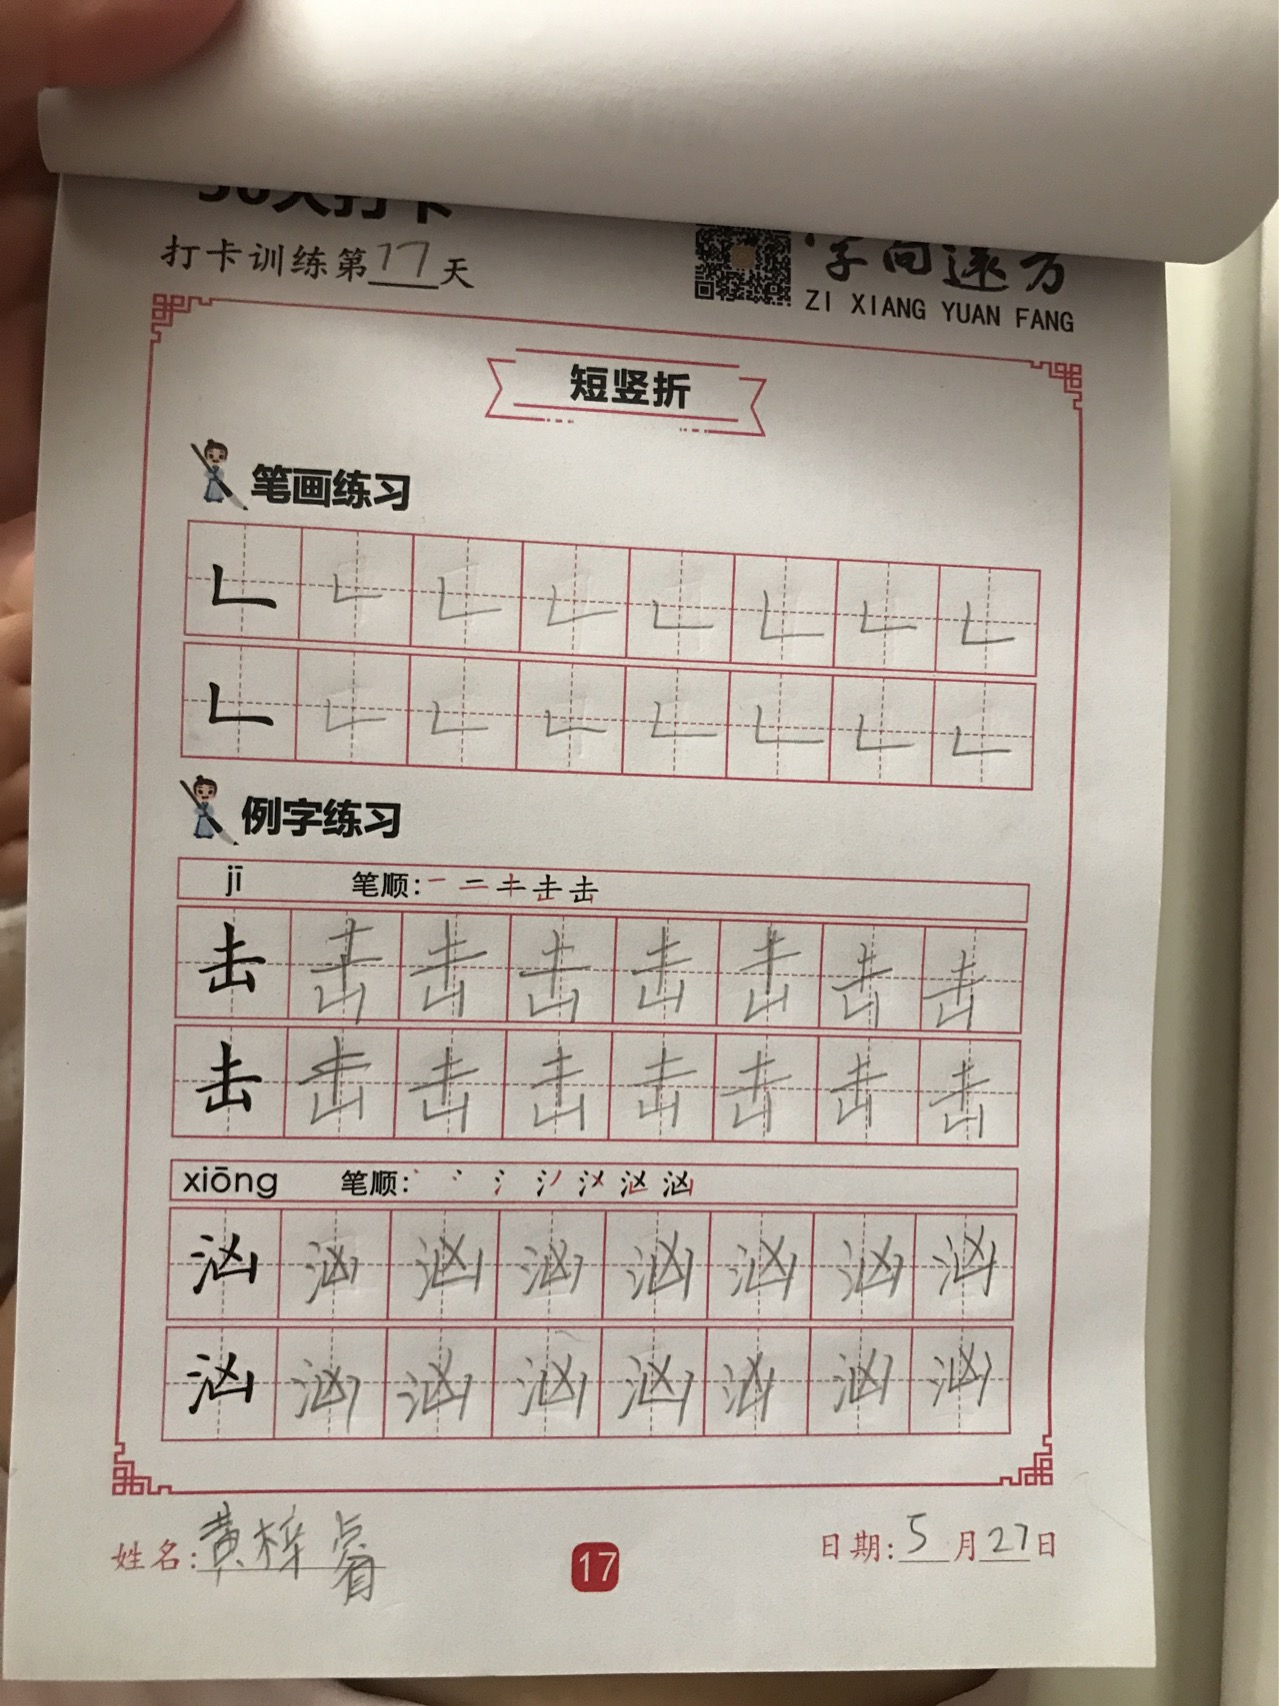 打卡训练第17天
字向远方
ZI XIANG YUAN FANG
短竖折
笔画练习
例字练习
jī 笔顺:
击 击 击 击 击 击 击 击
击 击 击 击 击 击 击 击
xiōng 笔顺:
汹 汹 汹 汹 汹 汹 汹 汹
汹 汹 汹 汹 汹 汹 汹 汹
姓名:黄梓睿 17 日期:5月27日